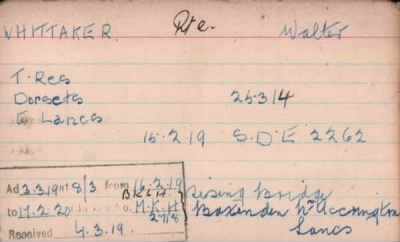 WHITTAKER Pte. Walter
T. Res
Dorsets 25314
E Lancs
15.2.19 S.D.E 2262
Ad 2.3.19 nt 8/3 from 16.2.19
B.R.L.H.
to 17.2.20 M.K.H Rising Bridge
27/8 Baxenden Nr Accrington
Received 4.3.19. Lancs